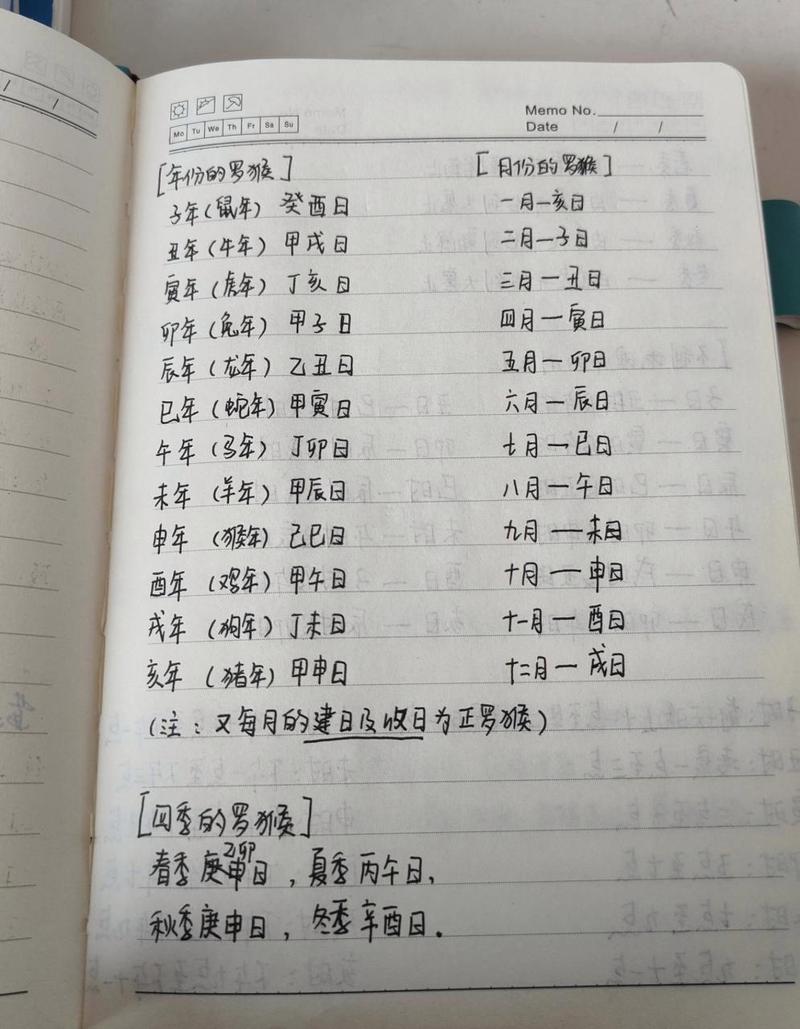 Memo No.
Date / /
Mo Tu We Th Fr Sa Su
[年份的罗猴]
子年(鼠年) 癸酉日
丑年(牛年) 甲戌日
寅年(虎年) 丁亥日
卯年(兔年) 甲子日
辰年(龙年) 乙丑日
巳年(蛇年) 甲寅日
午年(马年) 丁卯日
未年(羊年) 甲辰日
申年(猴年) 己巳日
酉年(鸡年) 甲午日
戌年(狗年) 丁未日
亥年(猪年) 甲申日
[月份的罗猴]
一月—亥日
二月—子日
三月—丑日
四月—寅日
五月—卯日
六月—辰日
七月—巳日
八月—午日
九月—未日
十月—申日
十一月—酉日
十二月—戌日
(注:又每月的建日及收日为正罗猴)
[四季的罗猴]
乙卯
春季庚申日,夏季丙午日,
秋季庚申日,冬季辛酉日.